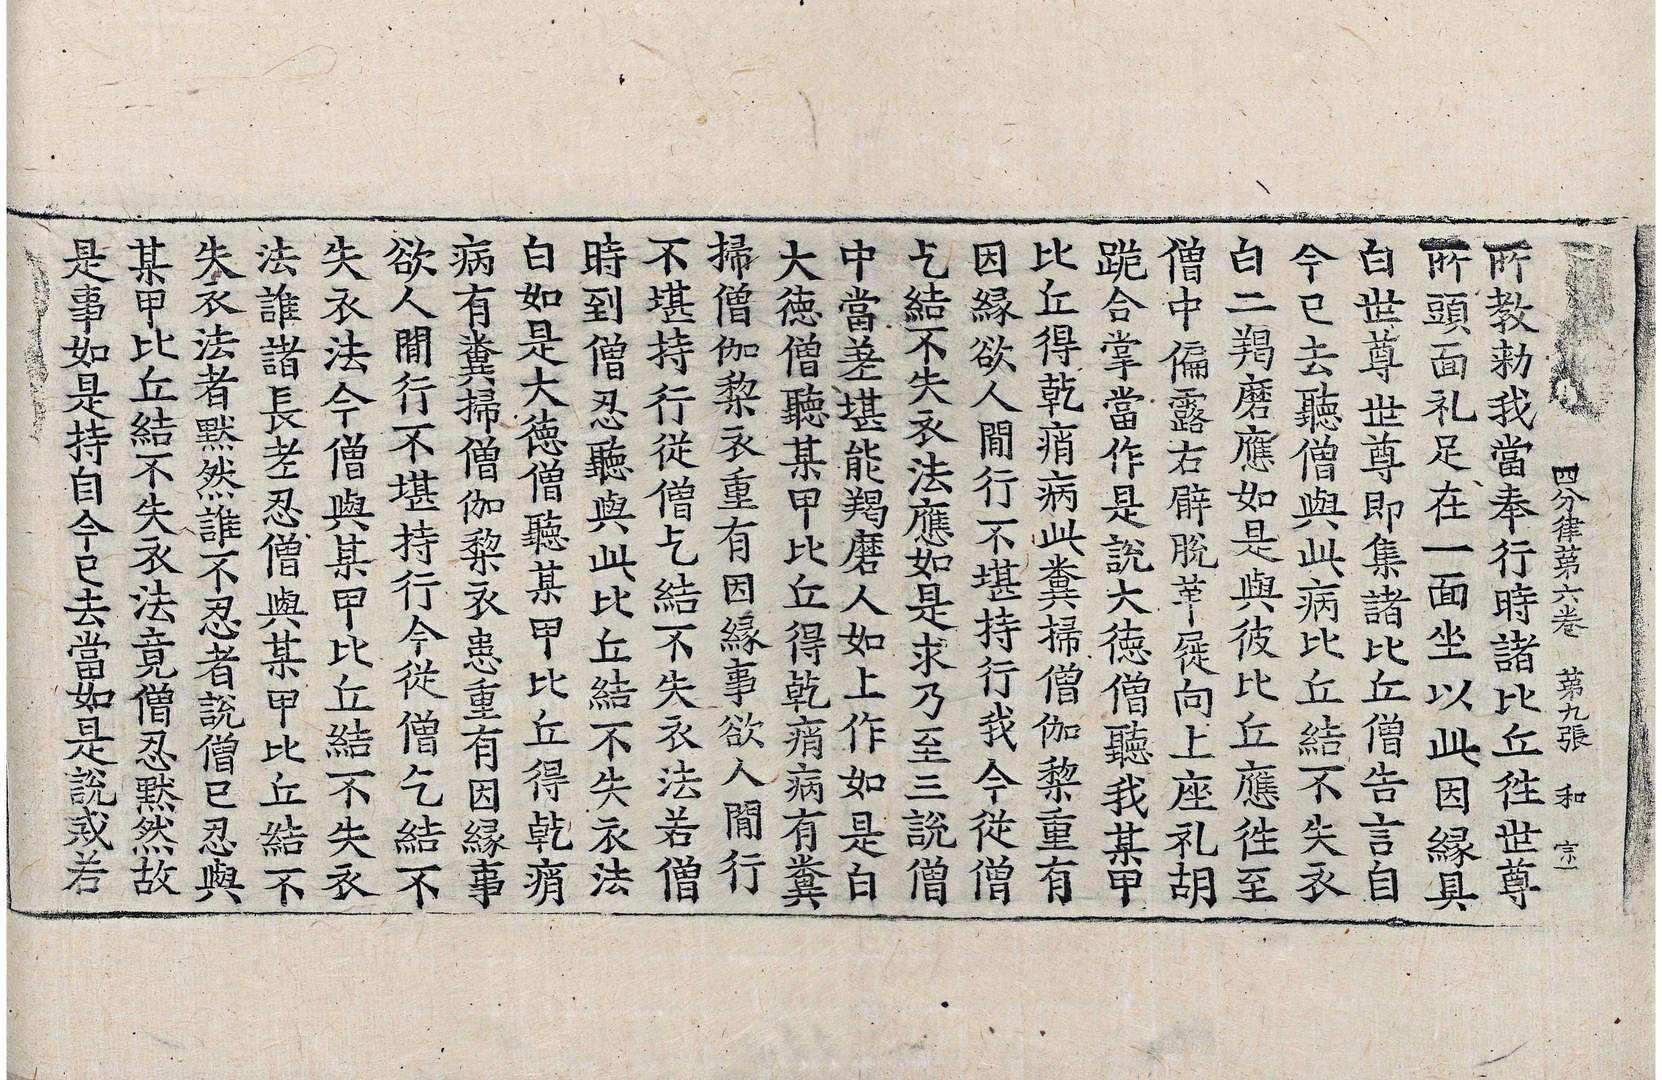 四分律第六卷 第九張 和 宗一
所教勑我當奉行時諸比丘徃世尊
所頭面礼足在一面坐以此因縁具
白世尊世尊即集諸比丘僧告言自
今已去聽僧與此病比丘結不失衣
白二羯磨應如是與彼比丘應徃至
僧中偏露右臂脫革屣向上座礼胡
跪合掌當作是說大徳僧聽我某甲
比丘得乾痟病此糞掃僧伽黎重有
因縁欲人間行不堪持行我今從僧
乞結不失衣法應如是求乃至三說僧
中當差堪能羯磨人如上作如是白
大徳僧聽某甲比丘得乾痟病有糞
掃僧伽黎衣重有因縁事欲人間行
不堪持行從僧乞結不失衣法若僧
時到僧忍聽與此比丘結不失衣法
白如是大徳僧聽某甲比丘得乾痟
病有糞掃僧伽黎衣患重有因縁事
欲人間行不堪持行今從僧乞結不
失衣法今僧與某甲比丘結不失衣
法誰諸長老忍僧與某甲比丘結不
失衣法者默然誰不忍者說僧已忍與
某甲比丘結不失衣法竟僧忍默然故
是事如是持自今已去當如是說戒若